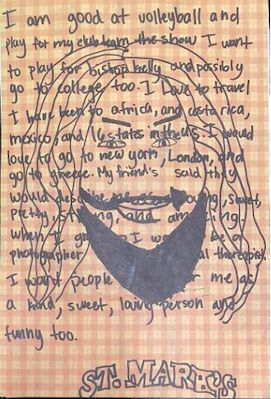 I am good at volleyball and
play for my club team the show I want
to play for bishop kelly and possibly
go to college too. I Love to travel
I have been to africa, and costa rica,
mexico and 16 states in the US. I would
love to go to new york, London, and
go to greece. My friend's said they
would describe me as young, sweet,
Pretty and
when I I be a
photographer therapist.
I want people me as
a kind, sweet, loving person and
funny too.
ST. MARK'S